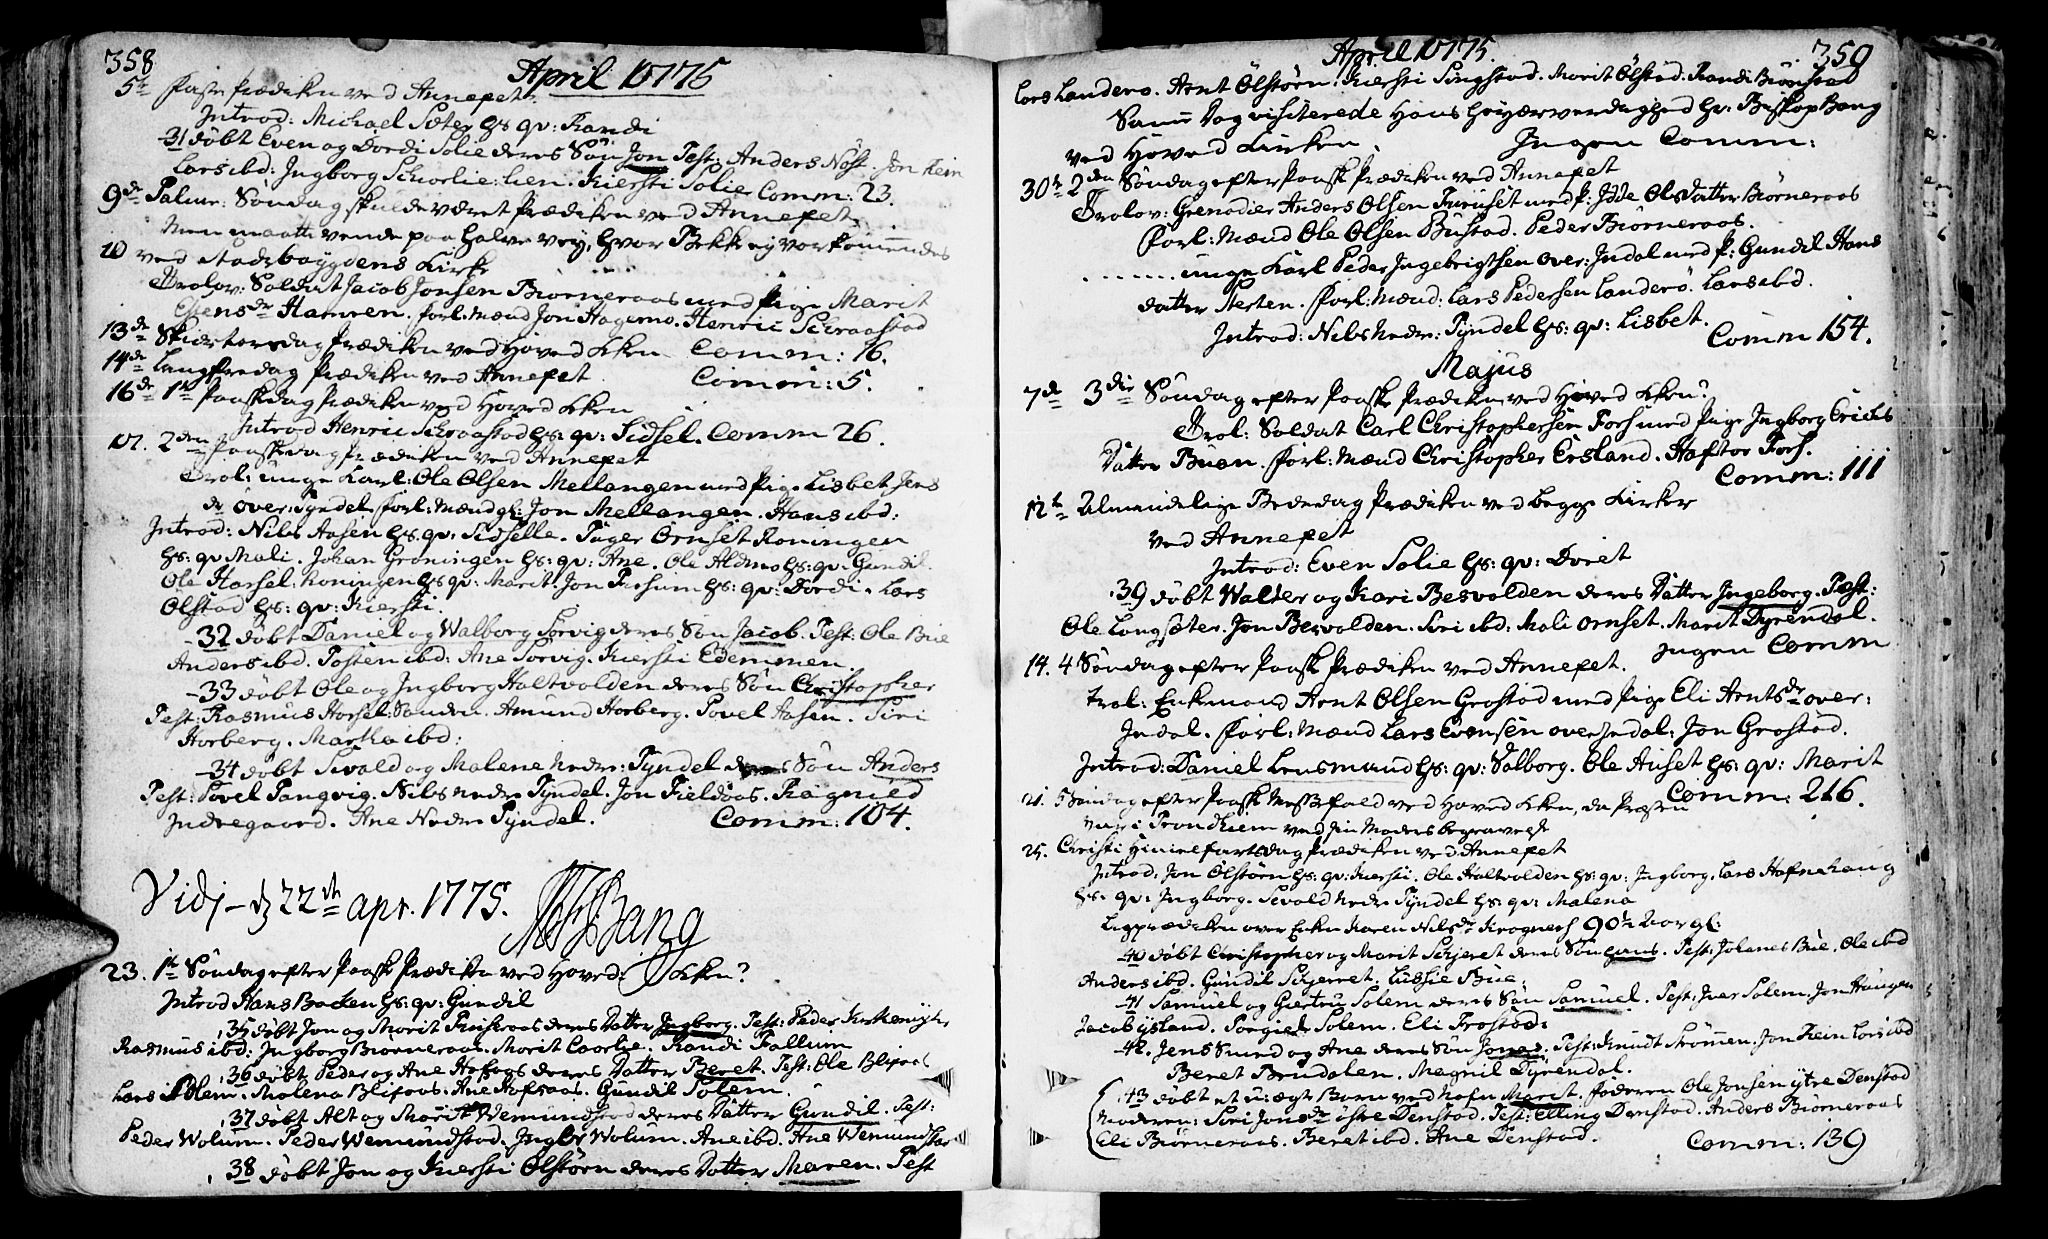 358
April 1775
5te Faste Prædiken ved Annexet
Introd: Michael Sæter hs: qv: Randi
31 døbt Even og Dordi Solie deres Søn Jon Test: Anders Nøst. Jon Kein
Lars ibd: Ingborg Schorlie: lien. Kiersti Solie Comm: 23.
9de Palme: Søndag skulde været Prædiken ved Annexet
Men maatte vende paa halve vey, hvor Bekk ey var kommendes
10 ved Stadsbøygdens Kirke
Trolov: Soldat Jacob Jonsen Biørneraas med Pige Marit
Estensdr Hamren. forl: Mænd Jon Hagemo. Henric Schraastad
13de Skiertorsdag Prædiken ved Hoved Kken Comm: 16.
14de Langfredag Prædiken ved Annexet. Comm: 5.
16de 1te Paaskedag Prædiken ved Hoved Kken
Introd Henric Schraastad hs: qv: Sidsel. Comm 26.
17. 2den Paaskedag Prædiken ved Annexet
Trol: unge Karl: Ole Olsen Mellangen med Pige Lisbet Jens
dr over: Tyndel. Forl: Mænd gl: Jon Mellangen. Hans ibd:
Introd: Nils Aasen hs: qv: Sidselle. Tøger Ornset Roningen
hs: qv Mali. Johan Grøningen hs: qv: Ane. Ole Aldmo hs: qv: Gundil.
Ole Harsel: honingen hs qv: Marit. Jon Fursum hs: qv: Dordi. Lars
Olstad hs: qv: Kiersti.
32 døbt Daniel og Walborg Sorvig deres Søn Jacob. Test: Ole Bue
Anders ibd. Tosten ibd: Ane Sorvig. Kiersti Edemmen.
33 døbt Ole og Ingborg Haltvolden deres Søn Christopher
Test: Rasmus Horsel: Sanden. Amund Horberg. Povel Aasen. Siri
Horberg. Martha ibd:
34 døbt Sivald og Malene nedre: Tyndel deres Søn Anders
Test: Povel Tangvig. Nils nedre Tyndel. Jon Fieldaas. Ragnild
Indregaard. Ane Nedre Tyndel. Comm: 104.
Vidj d 22th apr. 1775. Bang
23. 1te Søndag efter Paaske Prædiken ved Hoved: Kken?
Introd Hans Backen hs: qv: Gundil
35 døbt Jon og Marit Fuskeraas deres Datter Ingborg. Test: Peder
Rasmus ibd: Ingborg Biørneraas. Marit Caarlie. Randi Fallum
36 døbt Peder og Ane Hafsaas deres Datter Beret. Test: Ole Blixaas
Lars Solem. Malena Blixaas. Ane Hafsaas. Gundil Solem.
37 døbt Alt og Marit Wemundstad deres Datter Gundil. Test:
Peder Wolum. Peder Wemundstad. Ingbr Wolum. Ane ibd. Ane Wemundstad
38 døbt Jon og Kiersti Olstørn deres Datter Maren. Test
April 1775. 359
Lars Landerø. Arnt Olstørn. Kiersti Singstad. Marit Olstad. Randi Biørnstad
Samme Dag visiterede Hans Høyærværdighed Hr. Biskop Bang
ved Hoved Kirken. Ingen Comm:
30te 2den Søndag efter Paaske Prædiken ved Annexet
Trolov: Grenadier Anders Olsen Furuset med P: Idde Olsdatter Biørneraas
Forl: Mænd Ole Olsen Bustad. Peder Biørneraas.
unge Karl Peder Ingebrigtsen over: Indal med P: Gundil Hans
datter Sterten. Forl: Mænd: Lars Pedersen Landerø. Lars ibd.
Introd: Nils nedre: Tyndel hs: qv: Lisbet. Comm 154.
Majus
7de 3die Søndag efter Paaske Prædiken ved Hoved Kken?
Trol: Soldat Carl Christophersen Fors med Pige Ingborg Erichs
Datter Buan. Forl: Mænd Christopher Ersland. Haftor Fors.
Comm: 111
12te Almindelige Bededag Prædiken ved begge Kirker
ved Annexet
Introd: Even Solie hs: qv: Doret
39 døbt Walter og Kari Besvolden deres Datter Ingeborg. Test:
Ole Langsæter. Jon Besvolden. Siri ibd: Mali Ornset. Marit Dyrendal.
Ingen Comm
14. 4 Søndag efter Paaske Prædiken ved Annexet.
Trol: Enkemand Arnt Olsen Grostad med Pige Eli Arntsdr over:
Indal. Forl: Mænd Lars Evensen over Indal: Jon Grostad.
Introd: Daniel Lensmand hs: qv: Valborg. Ole Auset hs: qv: Marit
Comm: 216.
21. 5 Søndag efter Paaske Messefald ved Hoved Kken, da Præsten
var i Trondhiem ved sin Moders begravelse
25. Christi Himmelfartsdag Prædiken ved Annexet
Introd: Jon Olstørn hs: qv: Kiersti. Ole Haltvolden hs: qv: Ingborg. Lars Hafnehaug
hs: qv: Ingborg. Sevald nedr Tyndel hs: qv: Malena
Ligprædiken over Enken Karen Nilsdr Krognes 90te Aar gl:
40 døbt Christopher og Marit Schjeret deres Søn Hans. Test: Johanes Bue. Ole ibd
Anders ibd. Gundil Schjerret. Lussie Bue.
41 Samuel og Giertru Solem deres Søn Samuel. Test: Iver Solem. Jon Haugen
Jacob Ysland. Sorgiel Solem. Eli Frostad:
42. Jens Smed og Ane deres Søn Jonas. Test: Knudt Strømmen. Jon Klein Lars ibd
Beret Brudalen. Magnil Dyrendal.
43 døbt et u: ægt Barn ved nafn Marit. Faderen Ole Jonsen ytre Denstad
Moderen: Siri Jonsdr østre Denstad. Test: Elling Denstad. Anders Biørneraas
Eli Biørneraas. Beret ibd. Ane Denstad. Comm: 139